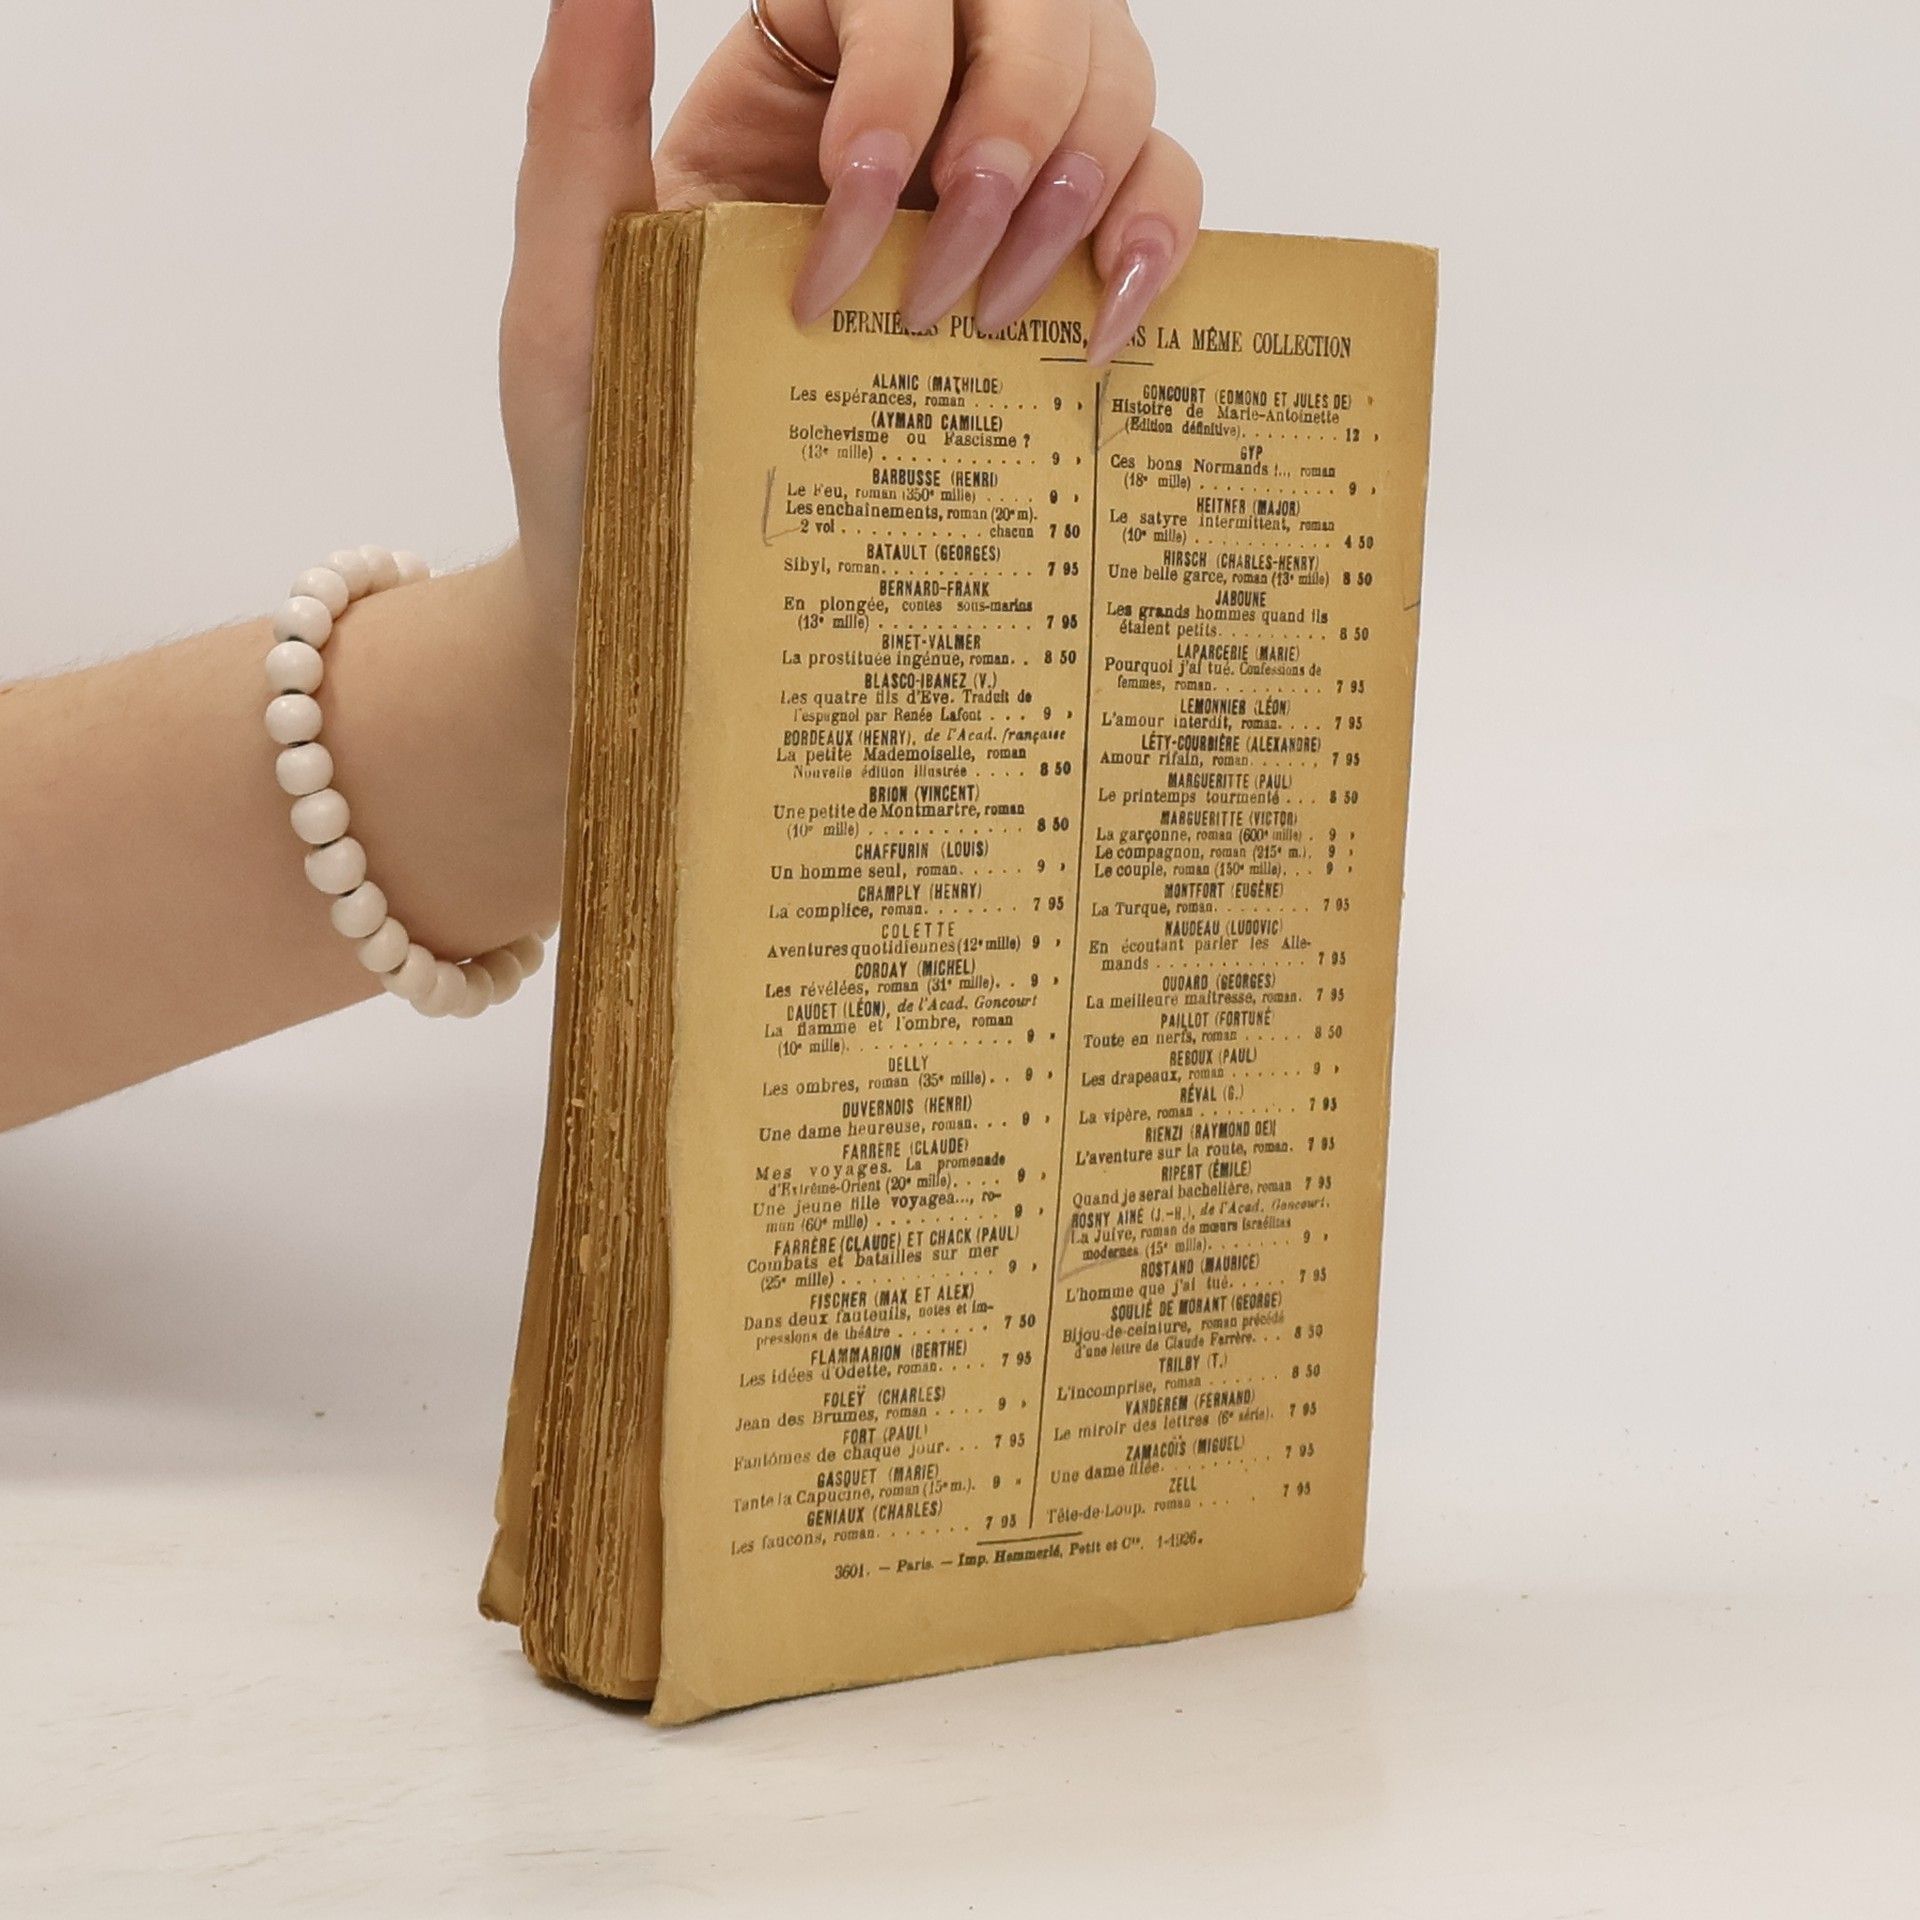 DERNIÈRES PUBLICATIONS, DANS LA MÊME COLLECTION
ALANIC (MATHILDE)
Les espérances, roman . . . . . 9 »
(AYMARD CAMILLE)
Bolchevisme ou Fascisme ?
(13e mille) . . . . . . . . . . . 9 »
BARBUSSE (HENRI)
Le Feu, roman (350e mille) . . . . 9 »
Les enchaînements, roman (20e m).
2 vol . . . . . . . . . . . chacun 7 50
BATAULT (GEORGES)
Sibyl, roman. . . . . . . . . . . 7 95
BERNARD-FRANK
En plongée, contes sous-marins
(13e mille) . . . . . . . . . . . 7 95
BINET-VALMER
La prostituée ingénue, roman. . 8 50
BLASCO-IBANEZ (V.)
Les quatre fils d'Eve. Traduit de
l'espagnol par Renée Lafont . . . 9 »
BORDEAUX (HENRY), de l'Acad. française
La petite Mademoiselle, roman
Nouvelle édition illustrée . . . . 8 50
BRION (VINCENT)
Une petite de Montmartre, roman
(10e mille) . . . . . . . . . . . 8 50
CHAFFURIN (LOUIS)
Un homme seul, roman. . . . . 9 »
CHAMPLY (HENRY)
La complice, roman. . . . . . . 7 95
COLETTE
Aventures quotidiennes (12e mille) 9 »
CORDAY (MICHEL)
Les révélées, roman (31e mille). . 9 »
DAUDET (LÉON), de l'Acad. Goncourt
La flamme et l'ombre, roman
(10e mille). . . . . . . . . . . 9 »
DELLY
Les ombres, roman (35e mille). . 9 »
DUVERNOIS (HENRI)
Une dame heureuse, roman. . . 9 »
FARRÈRE (CLAUDE)
Mes voyages. La promenade
d'Extrême-Orient (20e mille). . . . 9 »
Une jeune fille voyagea..., ro-
man (60e mille) . . . . . . . . . 9 »
FARRÈRE (CLAUDE) ET CHACK (PAUL)
Combats et batailles sur mer
(25e mille) . . . . . . . . . . . 9 »
FISCHER (MAX ET ALEX)
Dans deux fauteuils, notes et im-
pressions de théâtre . . . . . . . 7 50
FLAMMARION (BERTHE)
Les idées d'Odette, roman. . . . 7 95
FOLEŸ (CHARLES)
Jean des Brumes, roman . . . . 9 »
FORT (PAUL)
Fantômes de chaque jour. . . 7 95
GASQUET (MARIE)
Tante la Capucine, roman (15e m.). 9 »
GÉNIAUX (CHARLES)
Les faucons, roman. . . . . . . 7 95
GONCOURT (EDMOND ET JULES DE)
Histoire de Marie-Antoinette
(Édition définitive). . . . . . . . 12 »
GYP
Ces bons Normands !... roman
(18e mille) . . . . . . . . . . . 9 »
HEITNER (MAJOR)
Le satyre intermittent, roman
(10e mille) . . . . . . . . . . . 4 50
HIRSCH (CHARLES-HENRY)
Une belle garce, roman (13e mille) 8 50
JABOUNE
Les grands hommes quand ils
étaient petits. . . . . . . . . 8 50
LAPARCERIE (MARIE)
Pourquoi j'ai tué. Confessions de
femmes, roman. . . . . . . . . 7 95
LEMONNIER (LÉON)
L'amour interdit, roman. . . . 7 95
LÉTY-COURBIÈRE (ALEXANDRE)
Amour rifain, roman. . . . . . 7 95
MARGUERITTE (PAUL)
Le printemps tourmenté . . . 8 50
MARGUERITTE (VICTOR)
La garçonne, roman (600e mille) . 9 »
Le compagnon, roman (215e m.). 9 »
Le couple, roman (150e mille). . . 9 »
MONTFORT (EUGÈNE)
La Turque, roman. . . . . . . . 7 95
NAUDEAU (LUDOVIC)
En écoutant parler les Alle-
mands . . . . . . . . . . . . 7 95
OUDARD (GEORGES)
La meilleure maîtresse, roman. 7 95
PAILLOT (FORTUNÉ)
Toute en nerfs, roman . . . . . 8 50
REBOUX (PAUL)
Les drapeaux, roman . . . . . . 9 »
RÉVAL (G.)
La vipère, roman . . . . . . . . 7 95
RIENZI (RAYMOND DE)
L'aventure sur la route, roman. 7 95
RIPERT (ÉMILE)
Quand je serai bachelière, roman 7 95
ROSNY AINÉ (J.-H.), de l'Acad. Goncourt.
La Juive, roman de mœurs israélites
modernes (15e mille). . . . . . . 9 »
ROSTAND (MAURICE)
L'homme que j'ai tué. . . . . 7 95
SOULIÉ DE MORANT (GEORGE)
Bijou-de-ceinture, roman précédé
d'une lettre de Claude Farrère. . . 8 50
TRILBY (T.)
L'incomprise, roman . . . . . . 8 50
VANDEREM (FERNAND)
Le miroir des lettres (6e série). 7 95
ZAMACOÏS (MIGUEL)
Une dame filée. . . . . . . . . 7 95
ZELL
Tête-de-Loup. roman . . . . 7 95
3601. — Paris. — Imp. Hemmerlé, Petit et Cie. 1-1926.